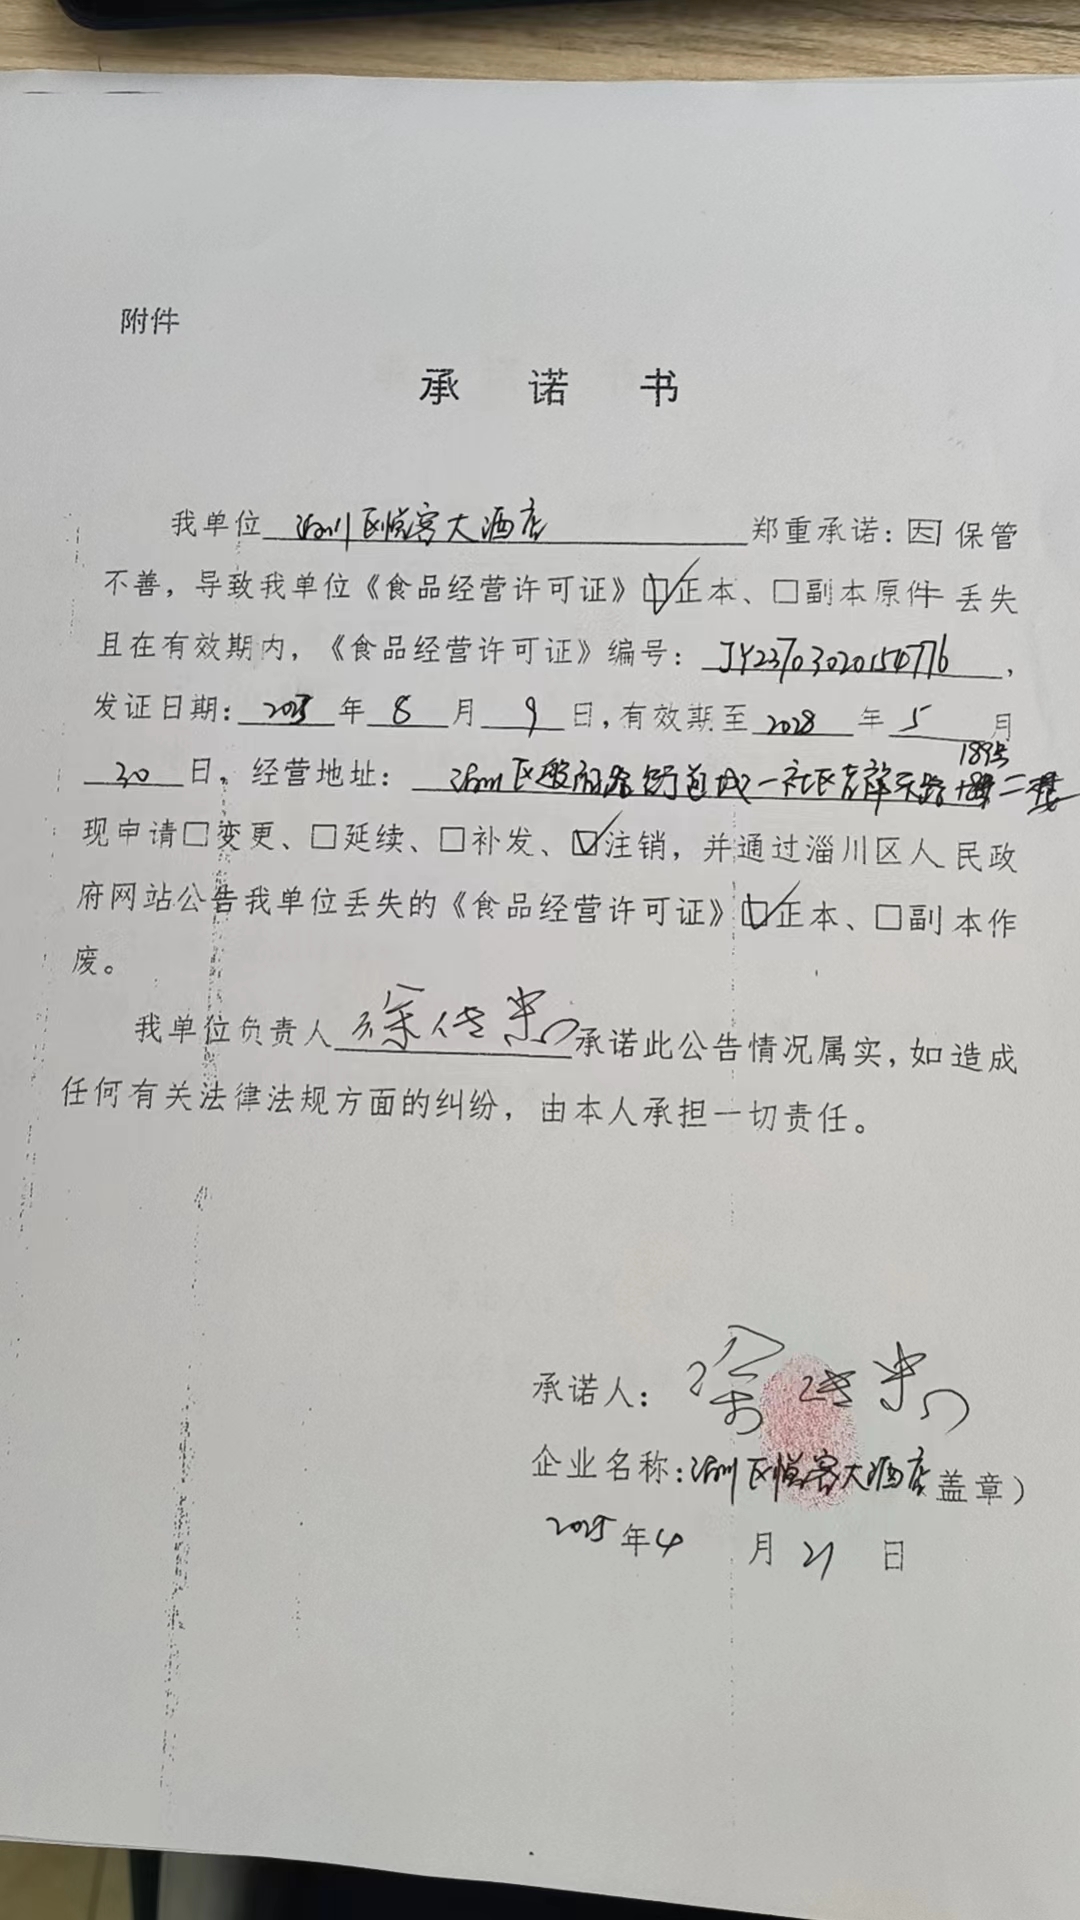 附件
承 诺 书
我单位 淄川区悦客大酒店 郑重承诺:因保管
不善,导致我单位《食品经营许可证》☑正本、□副本原件丢失
且在有效期内,《食品经营许可证》编号: JY23703020154776 ,
发证日期: 2023 年 8 月 9 日,有效期至 2028 年 5 月
30 日。经营地址: 淄川区般阳路街道城一社区吉祥天路189号二楼
现申请□变更、□延续、□补发、☑注销,并通过淄川区人民政
府网站公告我单位丢失的《食品经营许可证》☑正本、□副本作
废。
我单位负责人 徐传 承诺此公告情况属实,如造成
任何有关法律法规方面的纠纷,由本人承担一切责任。
承诺人: 徐传
企业名称:淄川区悦客大酒店盖章)
2025 年 4 月 21 日